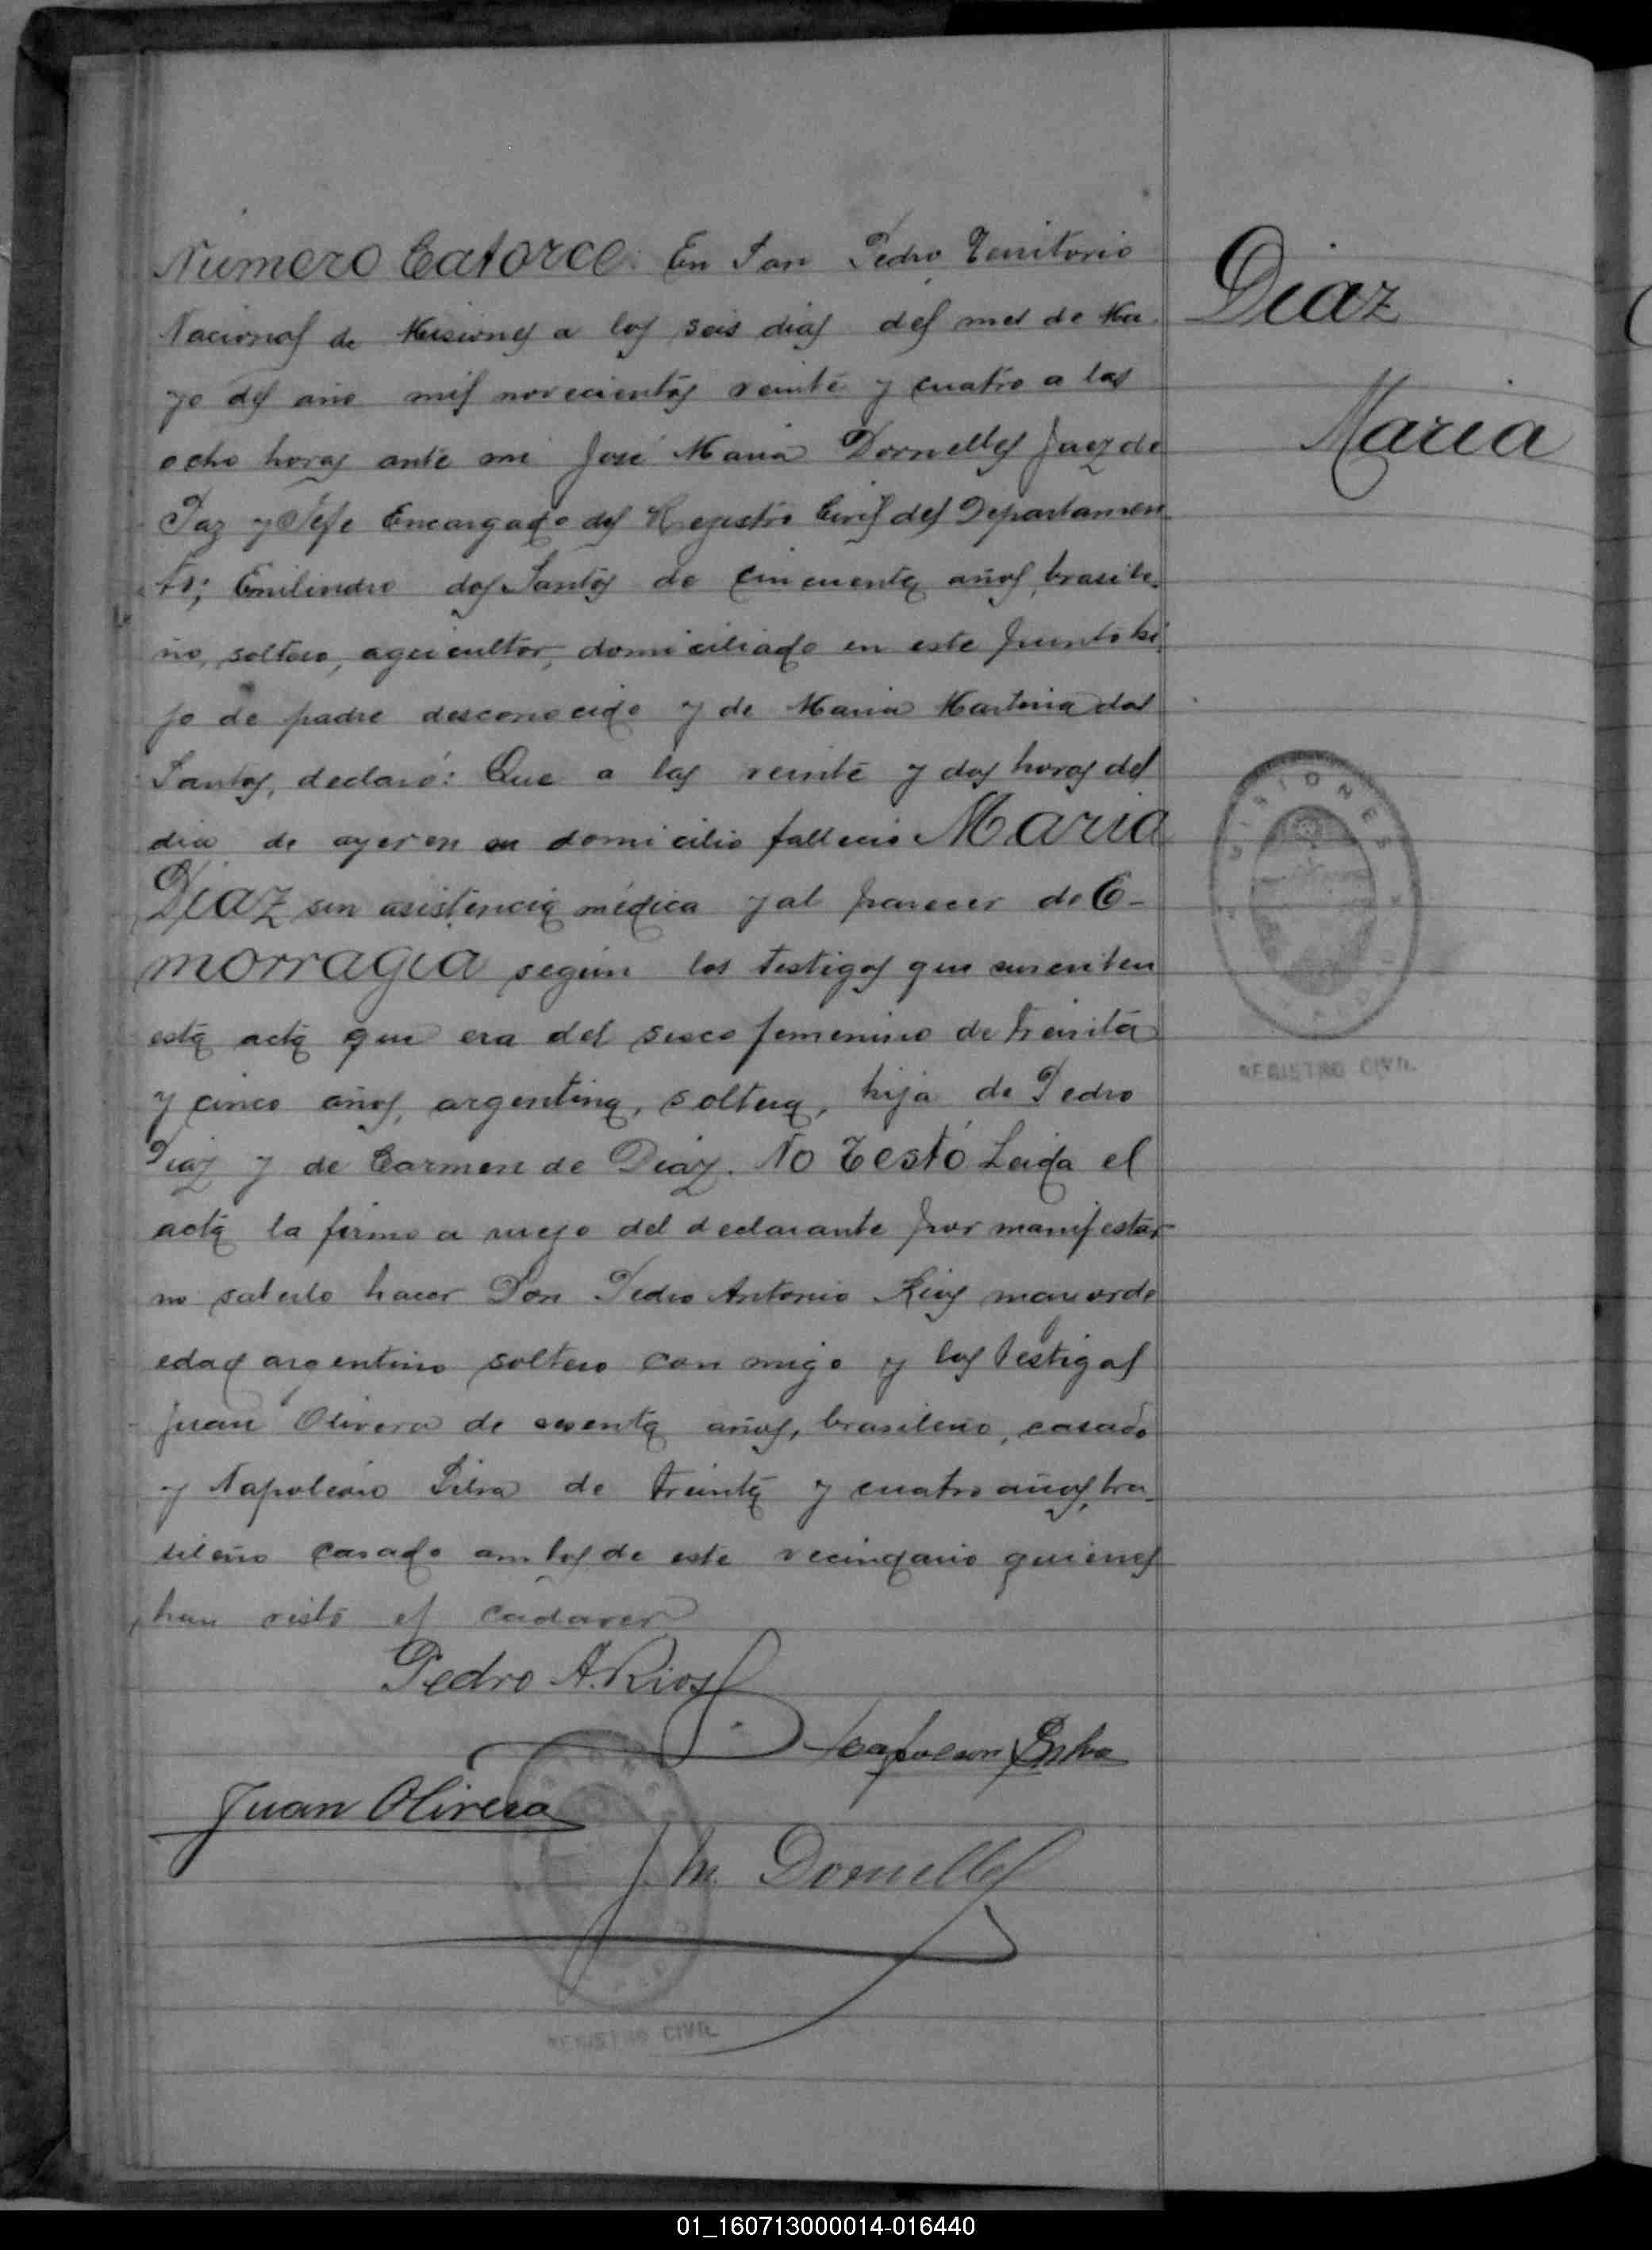 Número Catorce. En San Pedro Territorio
Nacional de Misiones a los seis dias del mes de Ma-
yo del año mil novecientos veinte y cuatro a las
ocho horas ante mi José Maria Dornelles Juez de
Paz y Jefe Encargado del Registro Civil del Departamen-
to; Emilindro dos Santos de cincuenta años, brasile-
ño, soltero, agricultor, domiciliado en este punto hi-
jo de padre desconocido y de Maria Martinia dos
Santos, declaró: Que a las veinte y dos horas del
dia de ayer en su domicilio fallecio Maria
Diaz sin asistencia médica y al parecer de E-
morragia según los testigos que suscriben
esta acta que era del sexo femenino de treinta
y cinco años, argentina, soltera, hija de Pedro
Diaz y de Carmen de Diaz. No Testó Leida el
acta la firmo a ruego del declarante por manifestar
no saberlo hacer Don Pedro Antonio Rios mayor de
edad argentino soltero con migo y los testigos
Juan Olivera de años, brasileño, casado
y Napoleão Silva de treinta y cuatro años, bra-
sileño casado ambos de este vecindario quienes
han visto el cadaver
Pedro A. Rios
Napoleon Silva
Juan Olivera
J. M. Dornelles
REGISTRO CIVIL
Diaz
Maria
MISIONES
REGISTRO CIVIL
01_160713000014-016440